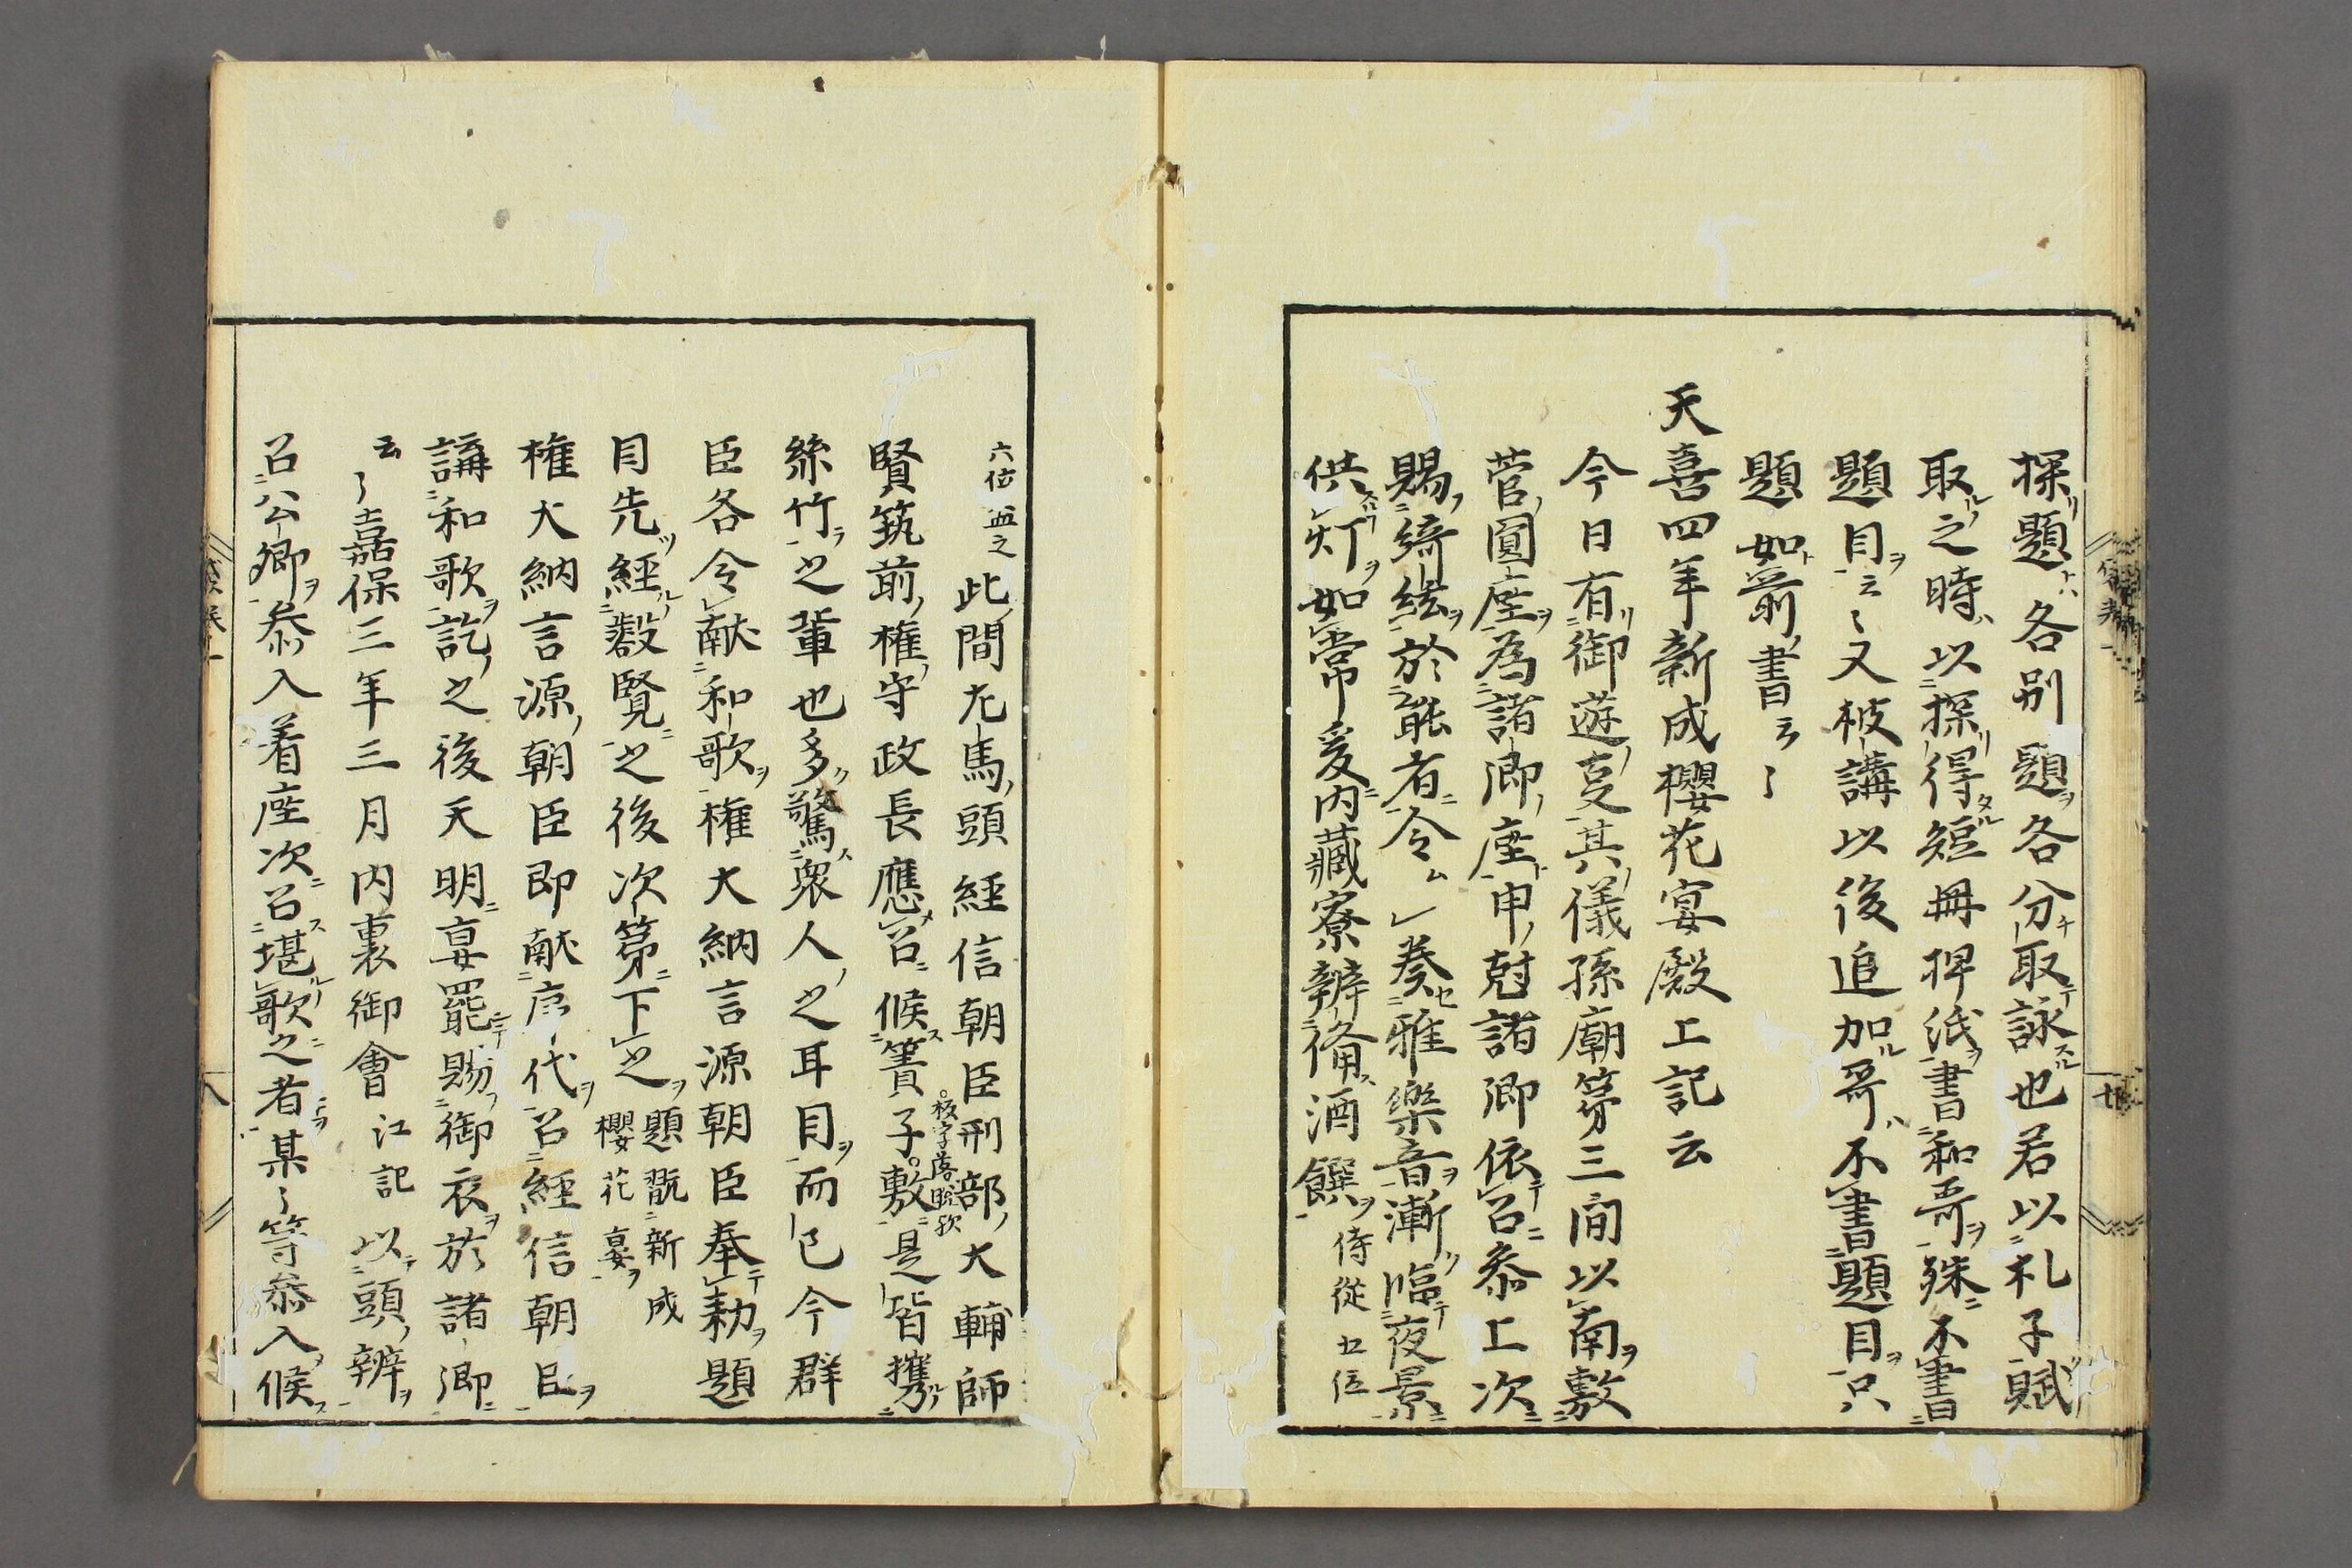 探題各別題各分取詠也若以札子賦
取之時以探得短冊押紙書和哥殊不書
題目云〻又被講以後追加哥不書題目只
題如前書云〻
天喜四年新成櫻花宴殿上記云
今日有御遊㕝其儀孫廂第三間以南敷
菅圓座為諸卿座申尅諸卿依召参上次
賜綺絃於能者令奏雅樂音漸臨夜景
供灯如常爰内藏寮辨備酒饌
侍從七位
六位益之
此間左馬頭経信朝臣刑部大輔師
賢筑前權守政長應召候簀子敷是皆携
板字落脱歟
絲竹之輩也多驚衆人之耳目而已今群
臣各令献和歌權大納言源朝臣奉勅題
目先経叡覧之後次第下之
題翫新成
櫻花宴
權大納言源朝臣即献序代召経信朝臣
講和歌訖之後天明宴罷賜御衣於諸卿
云〻嘉保三年三月内裏御會江記以頭辨
召公卿参入着座次召堪歌之者某〻等参入候